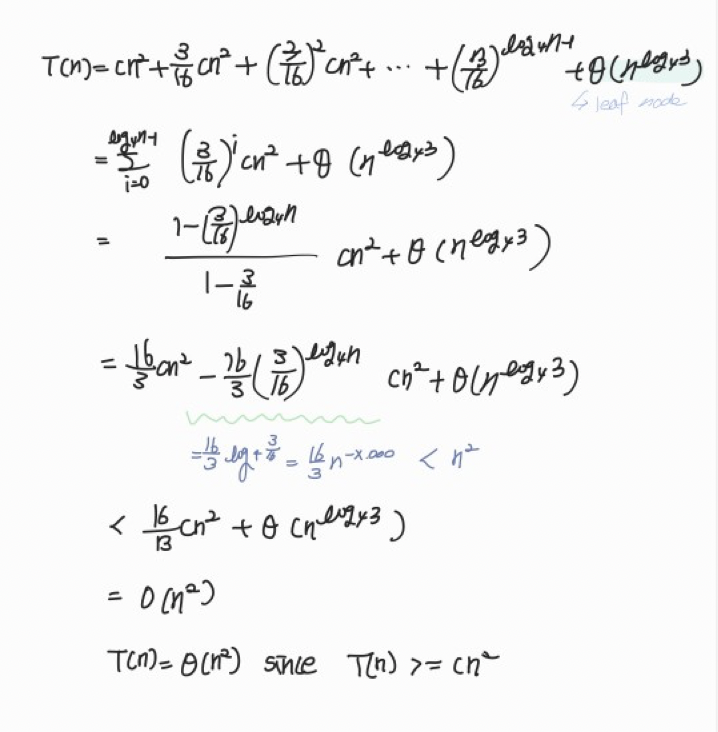 T(n) = cn² + 3/16 cn² + (3/16)² cn² + ... + (3/16)^(log₄n-1) + θ(n^(log₄3))
↳ leaf node
= Σ_(i=0)^(log₄n-1) (3/16)^i cn² + θ(n^(log₄3))
= (1-(3/16)^(log₄n))/(1-3/16) cn² + θ(n^(log₄3))
= 16/3 cn² - 16/3 (3/16)^(log₄n) cn² + θ(n^(log₄3))
= 16/3 log₄ 3/16 = 16/3 n^(-x.000) < n²
< 16/13 cn² + θ(n^(log₄3))
= O(n²)
T(n) = θ(n²) since T(n) >= cn²